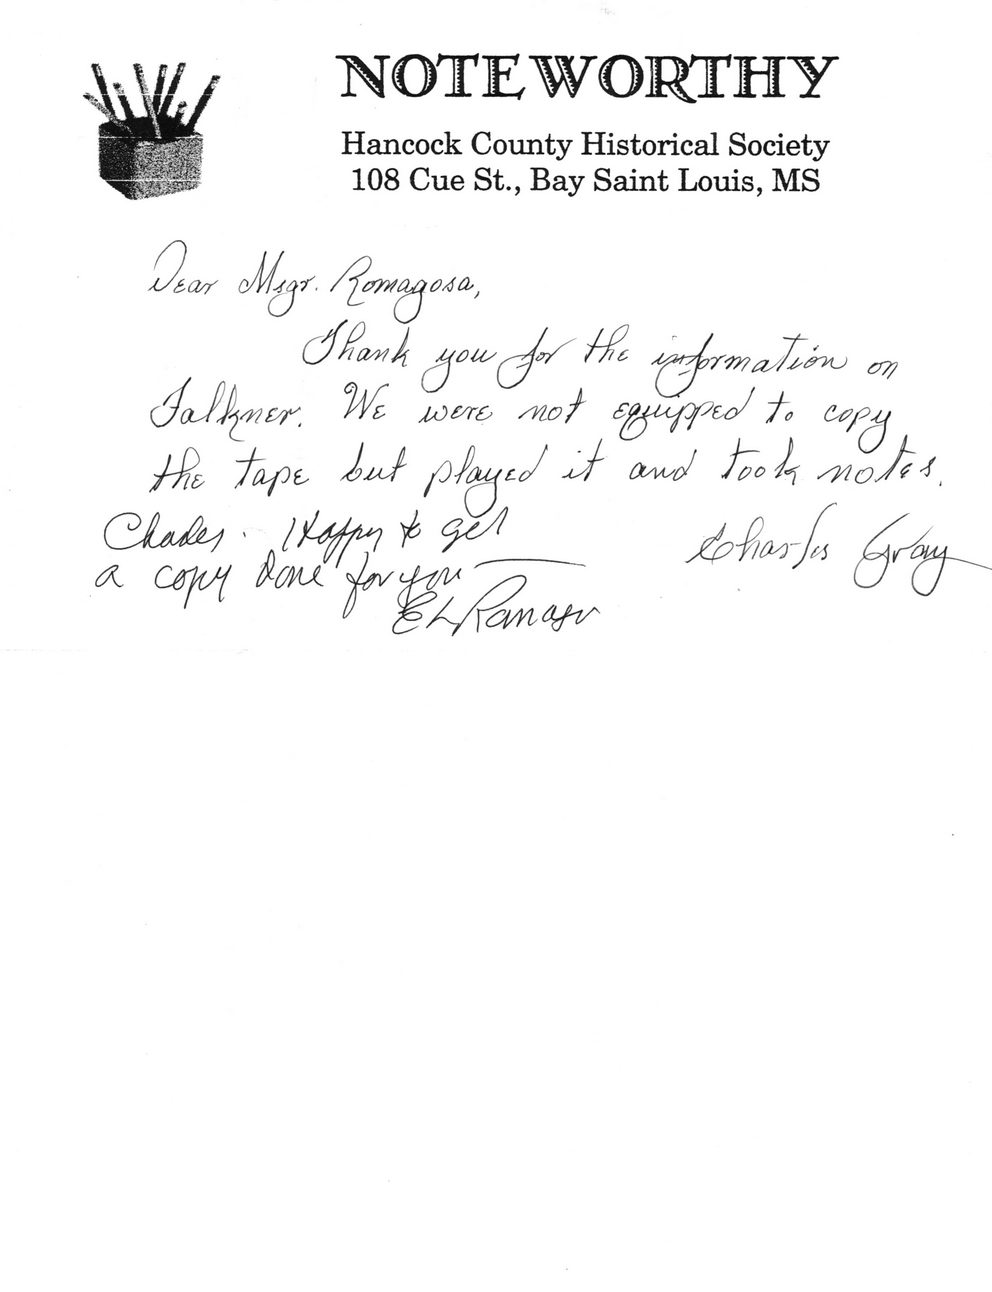 NOTEWORTHY
Hancock County Historical Society
108 Cue St., Bay Saint Louis, MS
Dear Msgr. Romagosa,
Thank you for the information on
Falkner. We were not equipped to copy
the tape but played it and took notes.
Charles Gray
Charles. Happy to get
a copy done for you